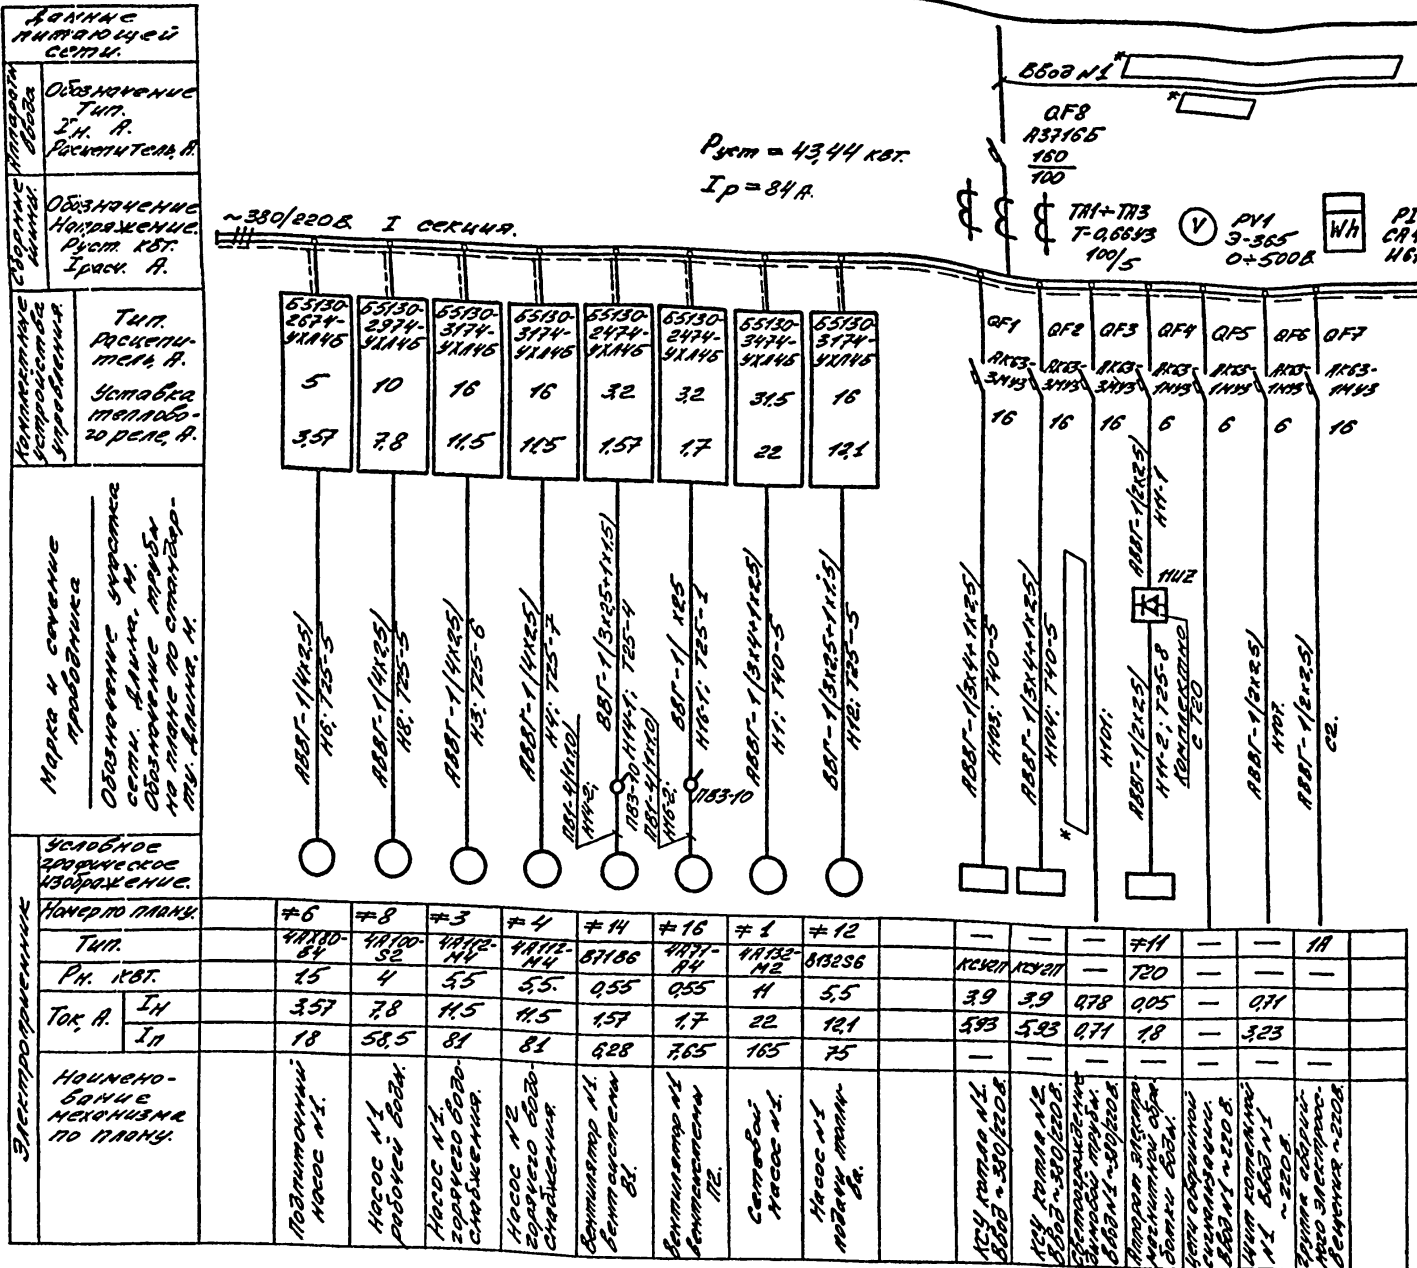 Данные
питающей
сети.
Аппараты
ввода
Обозначение
Тип.
Iн. А.
Расцепитель, А.
Сборные
шины.
Обозначение
Напряжение.
Руст. кВт.
Iрасч. А.
Комплектные
устройства
управления.
Тип.
Расцепи-
тель, А.
Уставка
теплово-
го реле, А.
Марка и сечение
проводника
Обозначение участка
сети. Длина. М.
Обозначение трубы
на плане по стандар-
ту. Длина, М.
Электроприемник
Условное
графическое
изображение.
Номер по плану.
Тип.
Рн. кВт.
Ток, А.
Iн
Iп
Наимено-
вание
механизма
по плану.
~380/220В. I секция.
Руст = 43,44 кВт.
Iр = 84 А.
Ввод N1 *
*
QF8
А3716Б
160
100
ТА1÷ТА3
Т-0,66У3
100/5
V
PV1
Э-365
0÷500В
Wh
PI
СА4
И67
Б5130-
2674-
УХЛ4Б
5
3,57
Б5130-
2974-
УХЛ4Б
10
7,8
Б5130-
3174-
УХЛ4Б
16
11,5
Б5130-
3174-
УХЛ4Б
16
11,5
Б5130-
2474-
УХЛ4Б
3,2
1,57
Б5130-
2474-
УХЛ4Б
3,2
1,7
Б5130-
3474-
УХЛ4Б
31,5
22
Б5130-
3174-
УХЛ4Б
16
12,1
QF1
АК63-
3МУ3
16
QF2
АК63-
3МУ3
16
QF3
АК63-
3МУ3
16
QF4
АК63-
1МУ3
6
QF5
АК63-
1МУ3
6
QF6
АК63-
1МУ3
6
QF7
АК63-
1МУ3
16
АВВГ-1(4х2,5)
Н6; Т25-5
АВВГ-1(4х2,5)
Н8; Т25-5
АВВГ-1(4х2,5)
Н3; Т25-6
АВВГ-1(4х2,5)
Н4; Т25-7
ВВГ-1(3х2,5+1х1,5)
Н14-1; Т25-4
ПВ3-10
ПВ1-4(1х1,0)
Н14-2;
ВВГ-1( х2,5
Н16-1; Т25-1
ПВ3-10
ПВ1-4(1х1,0)
Н16-2;
АВВГ-1(3х4+1х2,5)
Н1; Т40-5
ВВГ-1(3х2,5+1х1,5)
Н12; Т25-5
АВВГ-1(3х4+1х2,5)
Н103; Т40-5
АВВГ-1(3х4+1х2,5)
Н104; Т40-5
*
Н101;
АВВГ-1(2х2,5)
Н11-1
11UZ
АВВГ-1(2х2,5)
Н11-2; Т25-8
Комплектно
с Т20
АВВГ-1(2х2,5)
Н107.
АВВГ-1(2х2,5)
С2.
≠6 ≠8 ≠3 ≠4 ≠14 ≠16 ≠1 ≠12 — — — ≠11 — — 1А
4АХ80-
В4
4А100-
S2
4А112-
М4
4А112-
М4
В71В6
4А71-
А4
4А132-
М2
В132S6
КСУ2П КСУ2П — Т20 — — —
1,5 4 5,5 5,5. 0,55 0,55 11 5,5 3,9 3,9 0,78 0,05 — 0,71
3,57 7,8 11,5 11,5 1,57 1,7 22 12,1 5,93 5,93 0,71 1,8 — 3,23
18 58,5 81 81 6,28 7,65 165 75 — — — — — — —
Подпиточный
насос N1.
Насос N1
рабочей воды.
Насос N1.
горячего водо-
снабжения.
Насос N2
горячего водо-
снабжения.
Вентилятор N1.
вентсистемы
В1.
Вентилятор N1
вентсистемы
П2.
Сетевой
насос N1.
Насос N1
подачи топли-
ва.
КСУ котла N1.
Ввод ~380/220В.
КСУ котла N2.
Ввод ~380/220В.
Светоограждение
дымовой трубы.
Ввод N1 ~380/220В.
Аппарат электро-
магнитной обра-
ботки воды.
Цепи аварийной
сигнализации.
Ввод N1 ~220В.
Щит котельной
N1 Ввод N1
~220В.
Группа аварий-
ного электроос-
вещения ~220В.